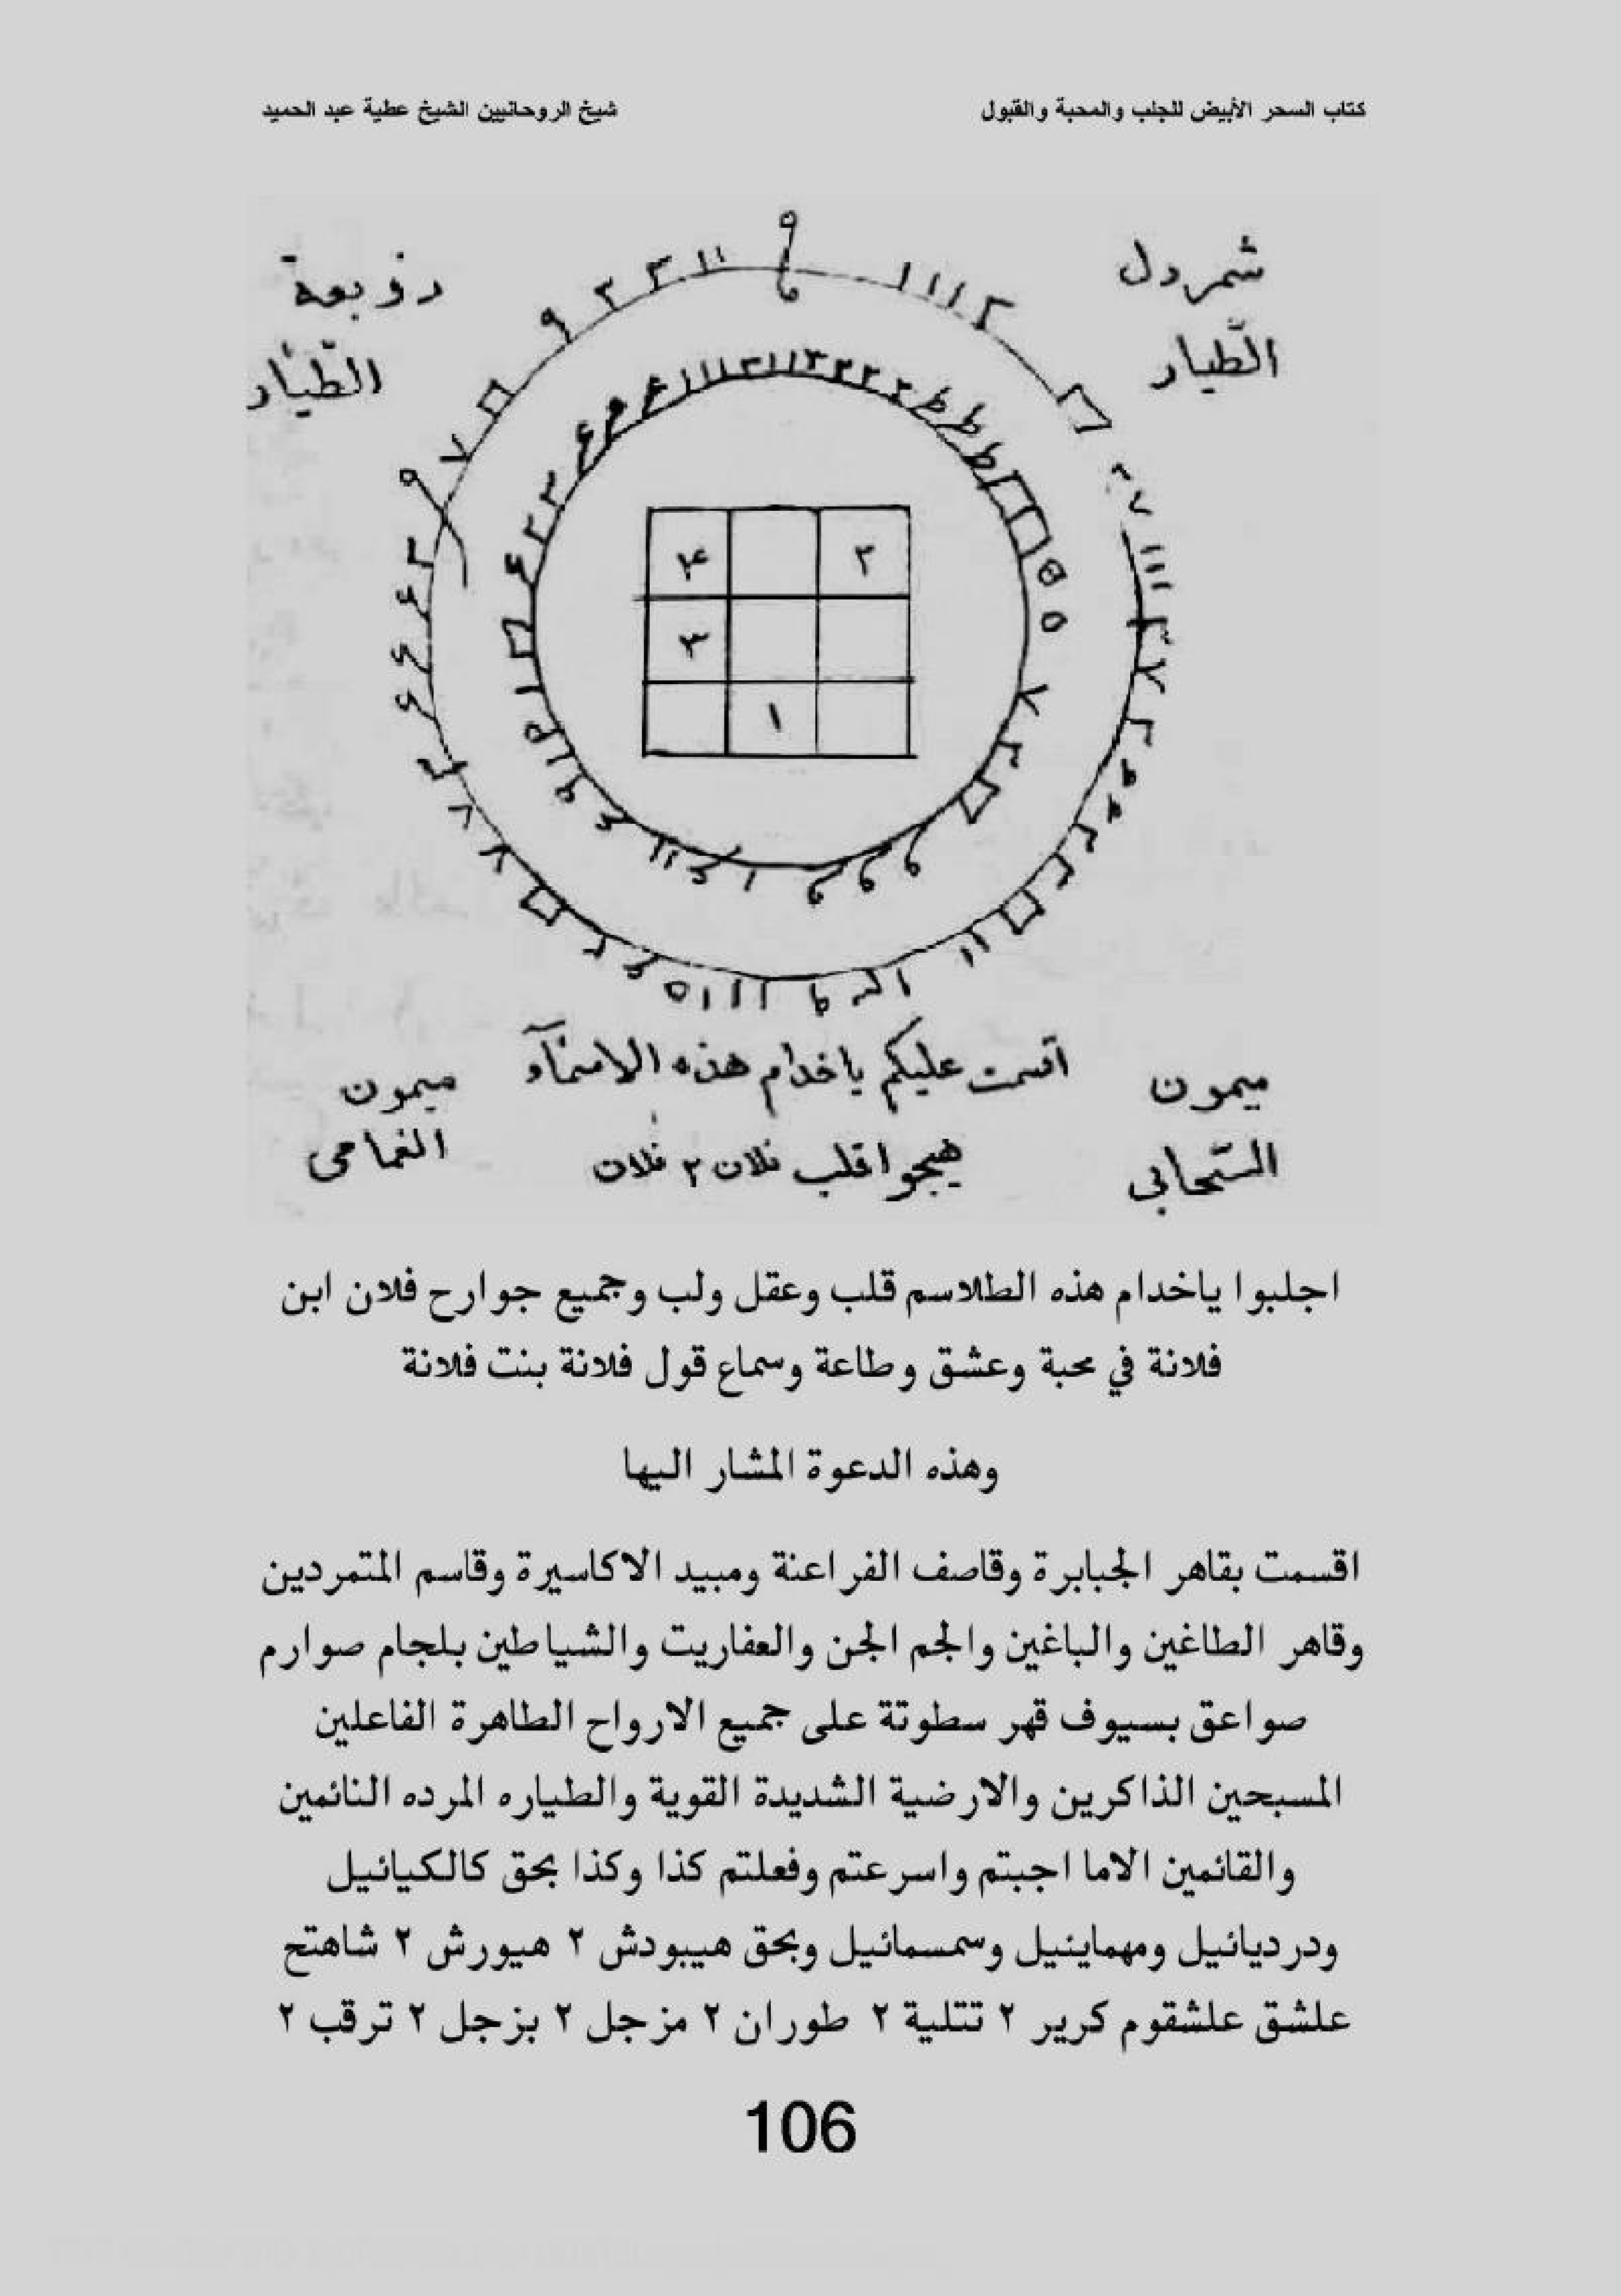 كتاب السحر الأبيض للجلب والمحبة والقبول
شيخ الروحانيين الشيخ عطية عبد الحميد
شمردل
الطيار
الطيار
٢ ٤
٣
١
اقسمت عليكم ياخدام هذه الاسمآء
هيجوا قلب فلان ٢ فلان
ميمون
السحابى
ميمون
الغمامى
اجلبوا ياخدام هذه الطلاسم قلب وعقل ولب وجميع جوارح فلان ابن
فلانة في محبة وعشق وطاعة وسماع قول فلانة بنت فلانة
وهذه الدعوة المشار اليها
اقسمت بقاهر الجبابرة وقاصف الفراعنة ومبيد الاكاسيرة وقاسم المتمردين
وقاهر الطاغين والباغين والجم الجن والعفاريت والشياطين بلجام صوارم
صواعق بسيوف قهر سطوتة على جميع الارواح الطاهرة الفاعلين
المسبحين الذاكرين والارضية الشديدة القوية والطياره المرده النائمين
والقائمين الاما اجبتم واسرعتم وفعلتم كذا وكذا بحق كالكيائيل
ودرديائيل ومهماينيل وسمسمائيل وبحق هيبودش ٢ هيورش ٢ شاهتح
علشق علشقوم كرير ٢ تتلية ٢ طوران ٢ مزجل ٢ بزجل ٢ ترقب ٢
106